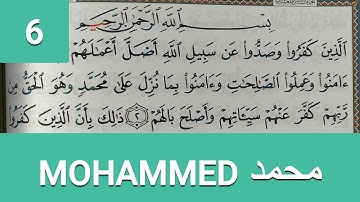 6
بِسْمِ ٱللَّهِ ٱلرَّحْمَٰنِ ٱلرَّحِيمِ
ٱلَّذِينَ كَفَرُوا۟ وَصَدُّوا۟ عَن سَبِيلِ ٱللَّهِ أَضَلَّ أَعْمَٰلَهُمْ
ءَامَنُوا۟ وَعَمِلُوا۟ ٱلصَّٰلِحَٰتِ وَءَامَنُوا۟ بِمَا نُزِّلَ عَلَىٰ مُحَمَّدٍ وَهُوَ ٱلْحَقُّ مِن
رَّبِّهِمْ كَفَّرَ عَنْهُمْ سَيِّـَٔاتِهِمْ وَأَصْلَحَ بَالَهُمْ ٢ ذَٰلِكَ بِأَنَّ ٱلَّذِينَ كَفَرُوا۟
MOHAMMED محمد